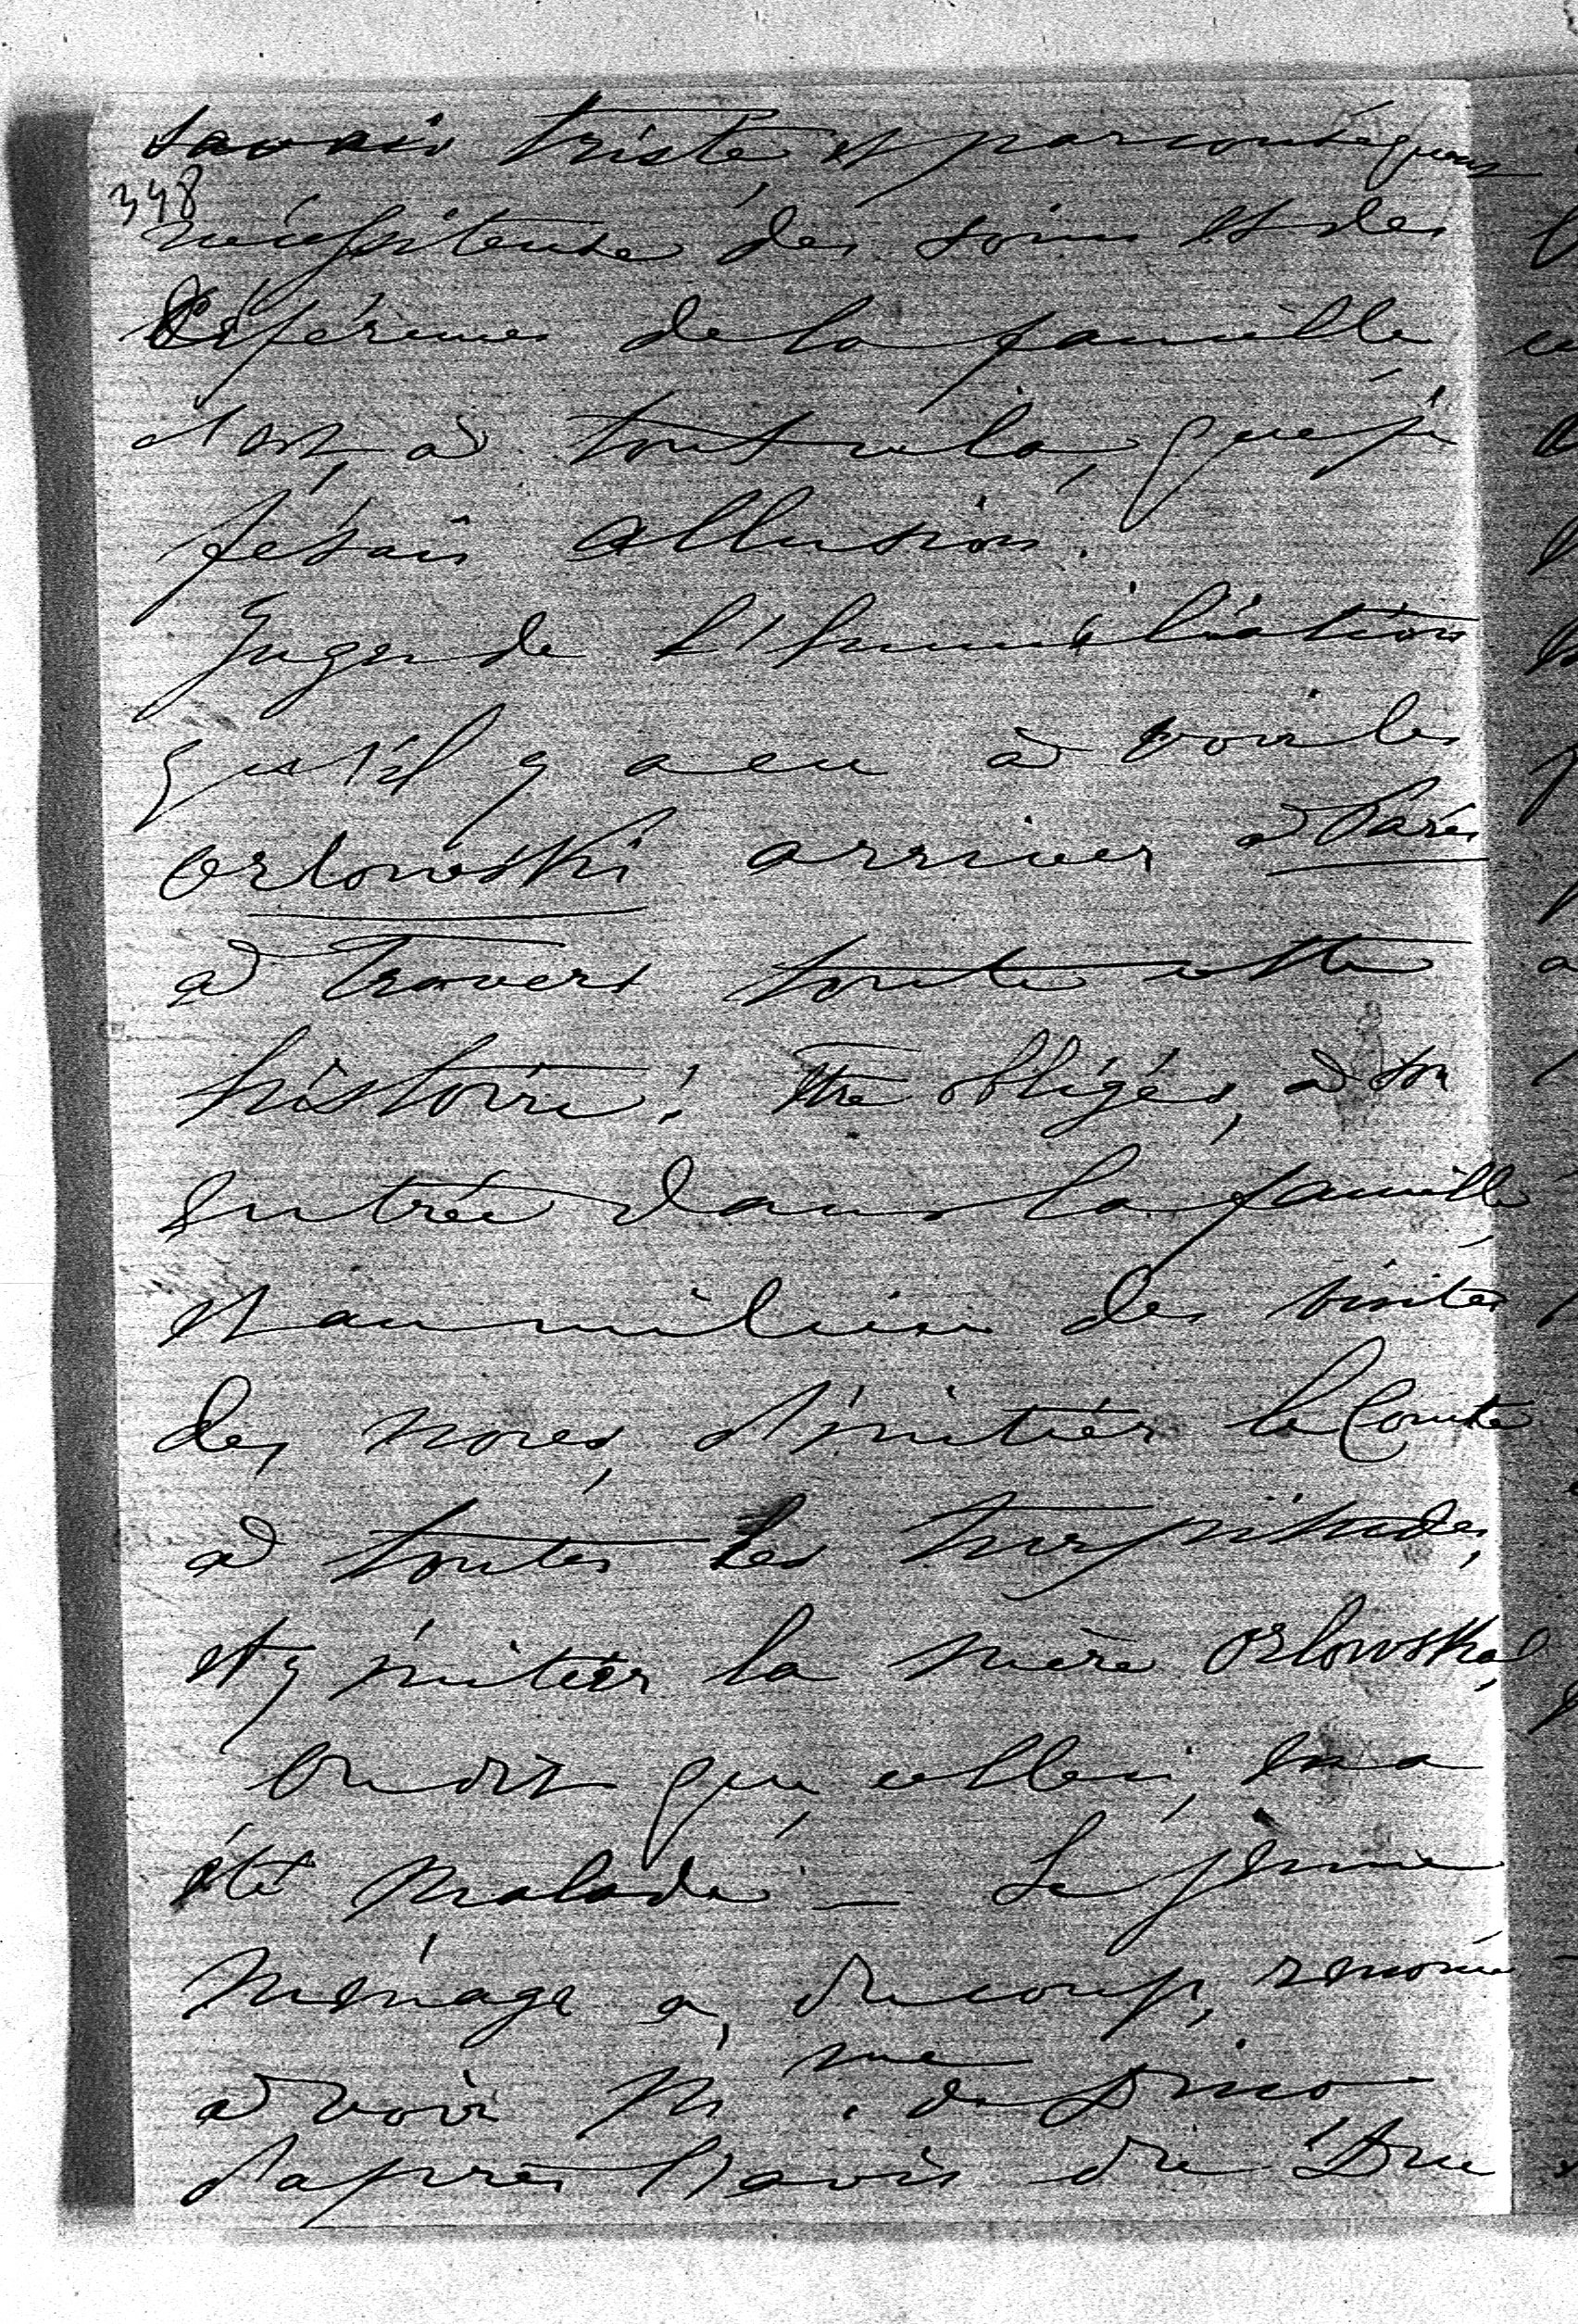 savais triste, et parconséquent
348
nécessiteuse des soins et des
déférences de la famille
c'est, à tout cela, que je
fesais allusion.
Jugez de l'humiliation
qu'il y a eu à voir les
Orlowski arriver à Paris
à travers toute cette
histoire! être obligés, à son
entrée dans la famille,
et au milieu des visites
des noces, d'initier le Comte
à toutes les turpitudes,
et y initier la mère Orlowska,
On dit que, celle-ci, en a
été malade — Le jeune
ménage a, du coup, renoncé
à voir Mme de Dino
d'après l'avis du Duc